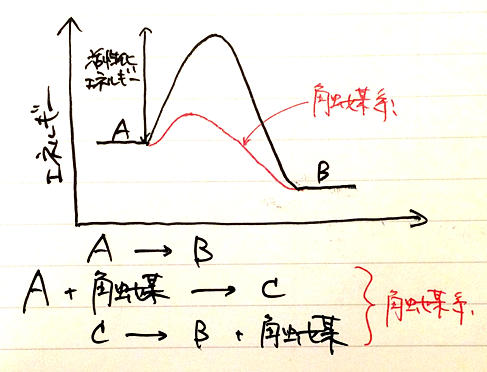 活性化
エネルギー
エネルギー
A
触媒系
B
A → B
A + 触媒 → C
C → B + 触媒
触媒系